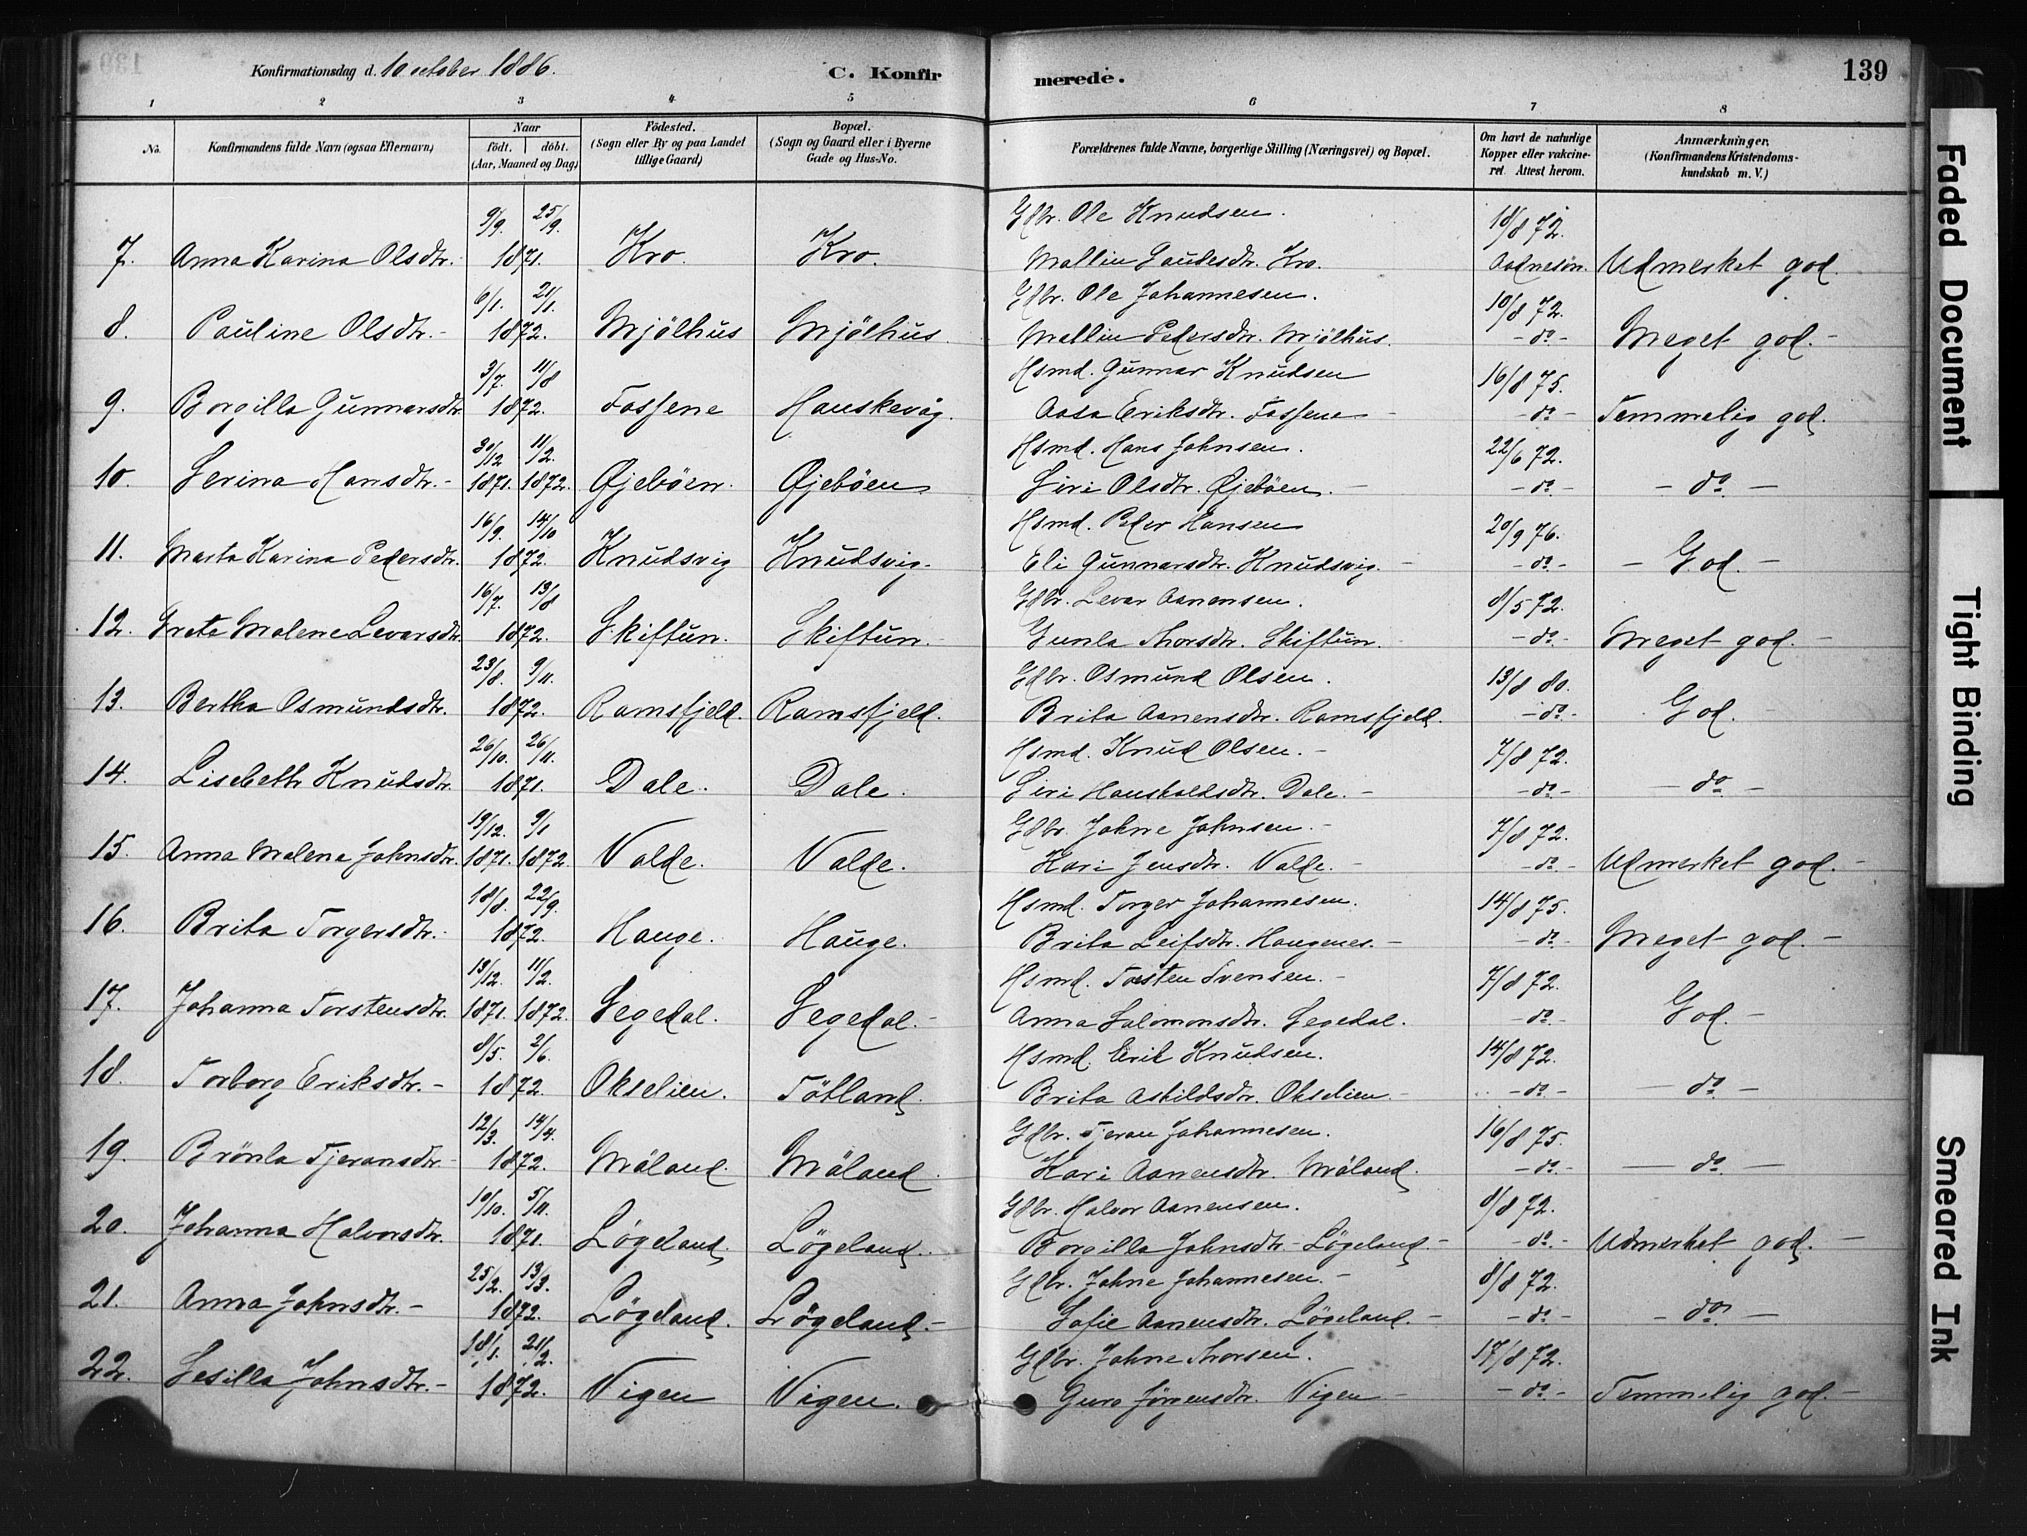 Konfirmationsdag d. 10 october 1886.
C. Konfirmerede.
139
1 2 3 4 5 6 7 8
No. Konfirmandens fulde Navn (ogsaa Efternavn) Naar födt. döbt. (Aar, Maaned og Dag) Födested. (Sogn eller By og paa Landet tillige Gaard) Bopæl. (Sogn og Gaard eller i Byerne Gade og Hus-No. Forældrenes fulde Navne, borgerlige Stilling (Næringsvei) og Bopæl. Om havt de naturlige Kopper eller vakcineret. Attest herom. Anmærkninger. (Konfirmandens Kristendomskundskab m. V.)
9/9. 25/9. Gdbr. Ole Knudsen. 18/8 72.
7. Anna Karina Olsdtr. 1871. Kro. Kro. Mallin Kro. Aadnesøn. Udmerket god.
6/1. 21/1. Gdbr. Ole Johannesen. 10/8 72.
8. Pauline Olsdtr. - 1872. Mjölhus Mjölhus. Mallin Pedersdtr. Mjölhus. - do - Meget god. -
3/7. 11/8 Hsmd. Gunnar Knudsen 16/8 75.
9. Borgilla Gunnarsdtr. 1872. Fossene Hauskevåg. Aasa Eriksdtr. Fossene - - do - Temmelig god.
30/12 11/2. Hsmd. Hans Johnsen. 22/6 72.
10. Serina Hansdtr. - 1871. 1872. Øjebøen. Øjebøen Siri Olsdtr. Øjebøen. - - do - - do -
16/9. 14/10 Hsmd. Peder Hansen 20/9 76.
11. Marta Karina Pedersdtr. 1872. Knudsvig Knudsvig. Eli Gunnarsdtr. Knudsvig. - - do - - God. -
16/7. 13/8 Gdbr. Levar Aanensen. 8/5 72.
12. Grete Malene Levarsdtr. 1872. Skiftun. Skiftun. Gunla Thorsdtr. Skiftun. - - do - Meget god. -
23/8. 9/11. Gdbr. Osmund Olsen. 13/8 80.
13. Bertha Osmundsdtr. 1872. Ramsfjeld. Ramsfjeld. Brita Aanensdtr. Ramsfjeld. - do - God. -
26/10. 26/11. Hsmd. Knud Olsen. - 7/8 72.
14. Lisebeth Knudsdtr. 1871. Dale. Dale. Siri Hauskoldsdtr. Dale. - - do - - do -
19/12. 9/1 Gdbr. Johne Johnsen. - 7/8 72.
15. Anna Malena Johnsdtr. 1871. 1872. Valde. Valde. Kari Jensdtr. Valde. - - do - Udmerket god. -
18/8. 22/9. Hsmd. Torger Johannesen. 14/8 75.
16. Brita Torgersdtr. - 1872. Hauge. Hauge. Brita Leifsdtr. Haugenes. - - do - Meget god. -
19/12. 11/2. Hsmd. Torsten Svensen. - 7/8 72.
17. Johanna Torstensdtr. 1871. 1872. Segedal. Segedal. - Anna Salomonsdtr. Segedal. - do - God. -
8/5. 2/6. Hsmd. Erik Knudsen. 14/8 72.
18. Torborg Eriksdtr. - 1872. Okselien. Tötland. Brita Askildsdtr. Okselien. - - do - - do -
12/3. 14/4. Gdbr. Tjeran Johannesen. 16/8 75.
19. Brönla Tjeransdtr. 1872. Måland. Måland. Kari Aanensdtr. Måland. - do - - do -
10/10. 5/11. Gdbr. Halvor Aanensen. 8/8 72.
20. Johanna Halvorsdtr. 1871. Lögeland. Lögeland. Borgilla Johnsdtr. - Lögeland. - - do - Udmerket god. -
25/2. 13/3. Gdbr. Johne Johannesen. - 8/8 72.
21. Anna Johnsdtr. - 1872. Lögeland. Lögeland. - Sofie Aanensdtr. Lögeland. - - do - - do -
18/1. 2/2. Gdbr. Johne Thorsen. 17/8 72.
22. Sesilla Johnsdtr. - 1872. Vigen Vigen. Guro Jörgensdtr. Vigen - - do - Temmelig god. -
Faded Document
Tight Binding
Smeared Ink